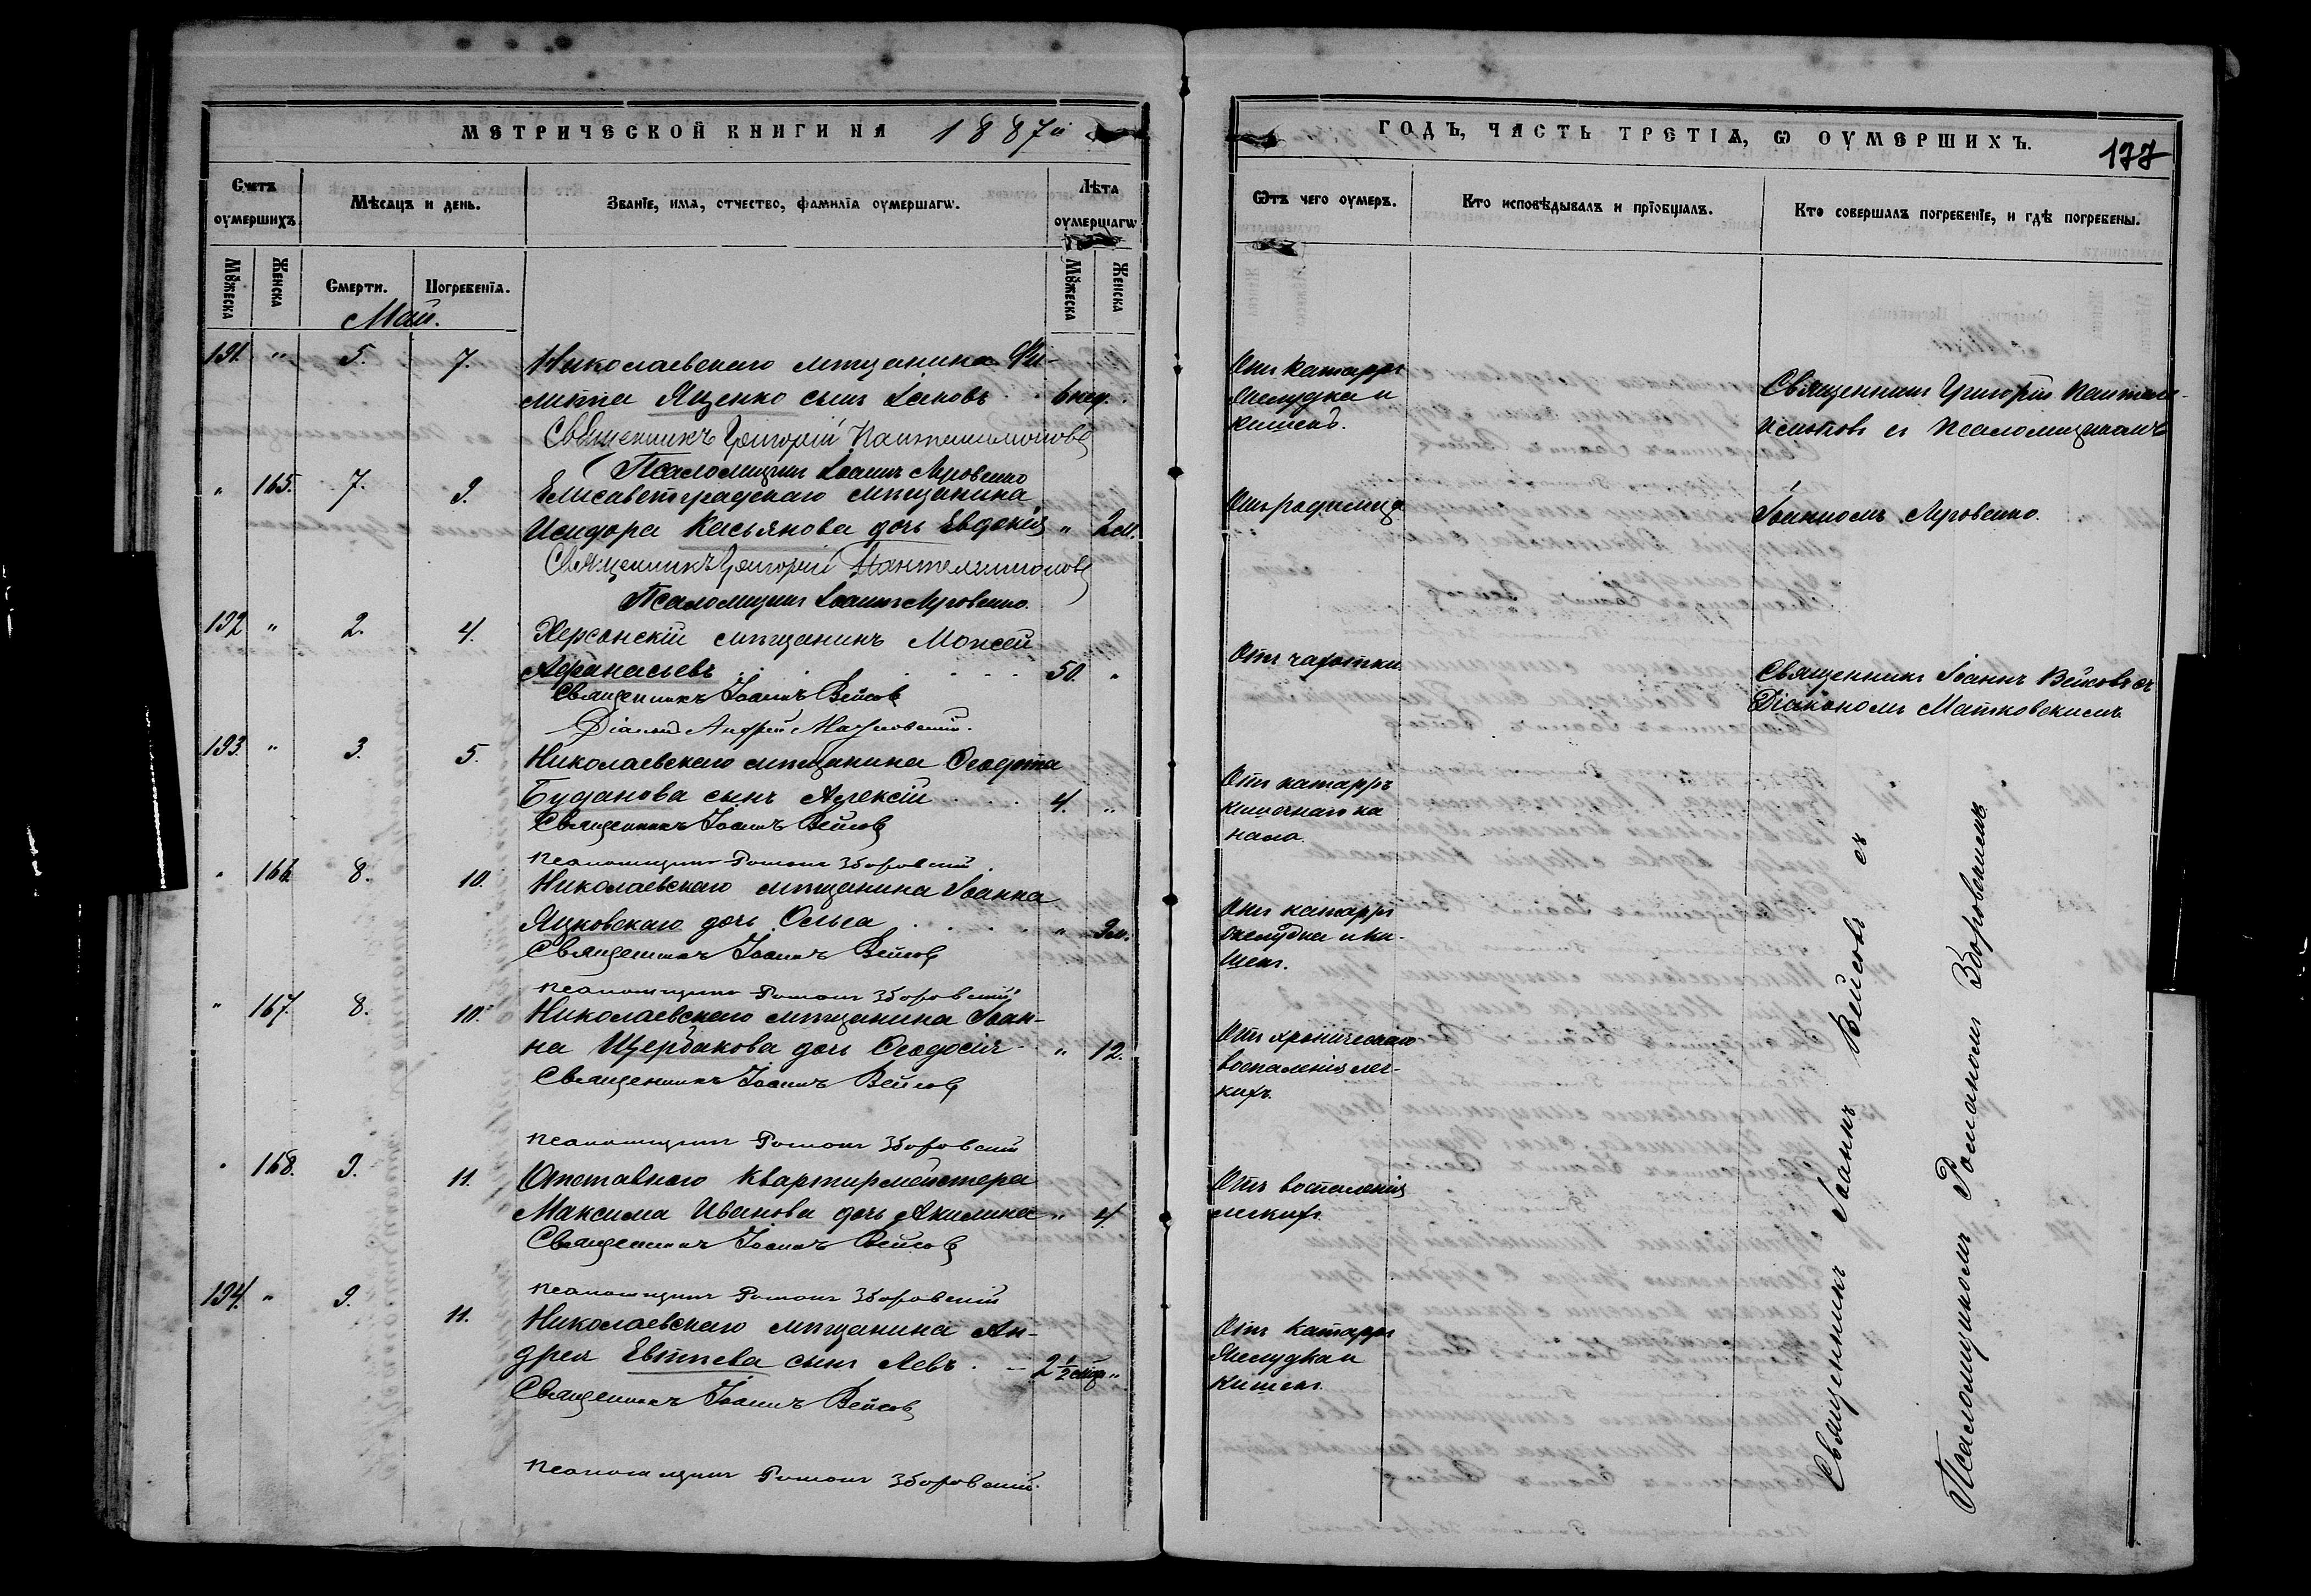 МЕТРИЧЕСКОЙ КНИГИ НА 1887й
ГОДЪ, ЧАСТЬ ТРЕТІЯ, Ѡ ОУМЕРШИХЪ.
177
Счетъ оумершихъ.
Мѣсяцъ и день.
Званїе, имя, отчество, фамилїа оумершагѡ.
Лѣта оумершагѡ
Ѿтъ чего оумеръ.
Кто исповѣдывалъ и прїобщалъ.
Кто совершалъ погребенїе, и гдѣ погребены.
Мꙋжеска
Женска
Смерти.
Погребенїя.
Мꙋжеска
Женска
Май.
191. " 5. 7. Николаевскаго мѣщанина Фи-
липпа Яценко сынъ Іаковъ 6 нед.
Священникъ Григорій Пантелимоновъ
Псаломщикъ Іоаннъ Луговенко
Отъ катарра
желудка и
кишекъ.
Священникъ Григорій Пантели-
моновъ съ псаломщикомъ
" 165. 7. 9. Елисаветградскаго мѣщанина
Исидора Касьянова дочь Евдокія " 2 м.
Священникъ Григорій Пантелимоновъ
Псаломщикъ Іоаннъ Луговенко.
Отъ родимца
Іоанномъ Луговенко.
192 " 2. 4. Херсонскій мѣщанинъ Моисей
Афанасьевъ 50. "
Священникъ Іоаннъ Вейсовъ
Діаконъ Андрей Матковскій.
Отъ чахотки
Священникъ Іоаннъ Вейсовъ съ
Діакономъ Матковскимъ
193. " 3. 5. Николаевскаго мѣщанина Ѳеодота
Буданова сынъ Алексій 4. "
Священникъ Іоаннъ Вейсовъ
Псаломщикъ Романъ Зборовскій.
Отъ катарръ
кишечнаго ка
нала.
" 166 8. 10. Николаевскаго мѣщанина Іоанна
Яцковскаго дочь Ольга " 9 м.
Священникъ Іоаннъ Вейсовъ
Псаломщикъ Романъ Зборовскій
Отъ катарра
желудка и ки-
шекъ.
" 167. 8. 10. Николаевскаго мѣщанина Іоан-
на Щербакова дочь Ѳеодосія " 12.
Священникъ Іоаннъ Вейсовъ
Псаломщикъ Романъ Зборовскій
Отъ хроническаго
воспаленія лег-
кихъ.
" 168. 9. 11. Отставного квартирмейстера
Максима Иванова дочь Акилина " 4
Священникъ Іоаннъ Вейсовъ
Псаломщикъ Романъ Зборовскій
Отъ воспаленія
легкихъ
194. " 9. 11. Николаевскаго мѣщанина Ан-
дрея Евтѣева сынъ Левъ. 2 1/2 "
Священникъ Іоаннъ Вейсовъ
Псаломщикъ Романъ Зборовскій.
Отъ катарра
желудка и
кишекъ.
Священникъ Іоаннъ Вейсовъ съ
Псаломщикомъ Романомъ Зборовскимъ